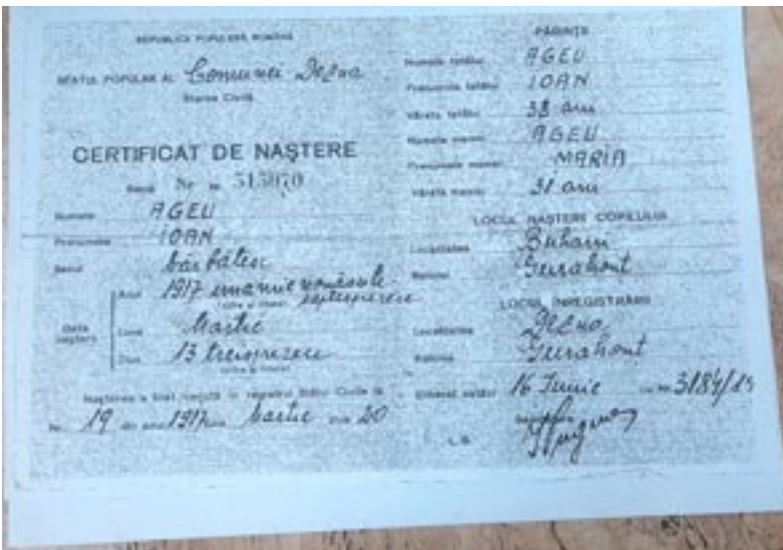 REPUBLICA POPULARĂ ROMÂNĂ
SFATUL POPULAR AL Comunei Dezna
Starea Civilă
CERTIFICAT DE NAȘTERE
Seria Nr 515070
Numele AGEU
Prenumele IOAN
Sexul bărbătesc
Data nașterii
Anul 1917 unamie nouăsute
șaptesprezece
Luna Martie
Ziua 13 treisprezece
Nașterea a fost trecută în registrul stării civile la
Nr. 19 din anul 1917 luna Martie ziua 20
PĂRINȚII
Numele tatălui AGEU
Prenumele tatălui IOAN
Vârsta tatălui 38 ani
Numele mamei AGEU
Prenumele mamei MARIA
Vârsta mamei 31 ani
LOCUL NAȘTERII COPILULUI
Localitatea Buhani
Raionul Gurahonț
LOCUL ÎNREGISTRĂRII
Localitatea Dezna
Raionul Gurahonț
Eliberat astăzi 16 Iunie cu Nr. 3184/
L. S.